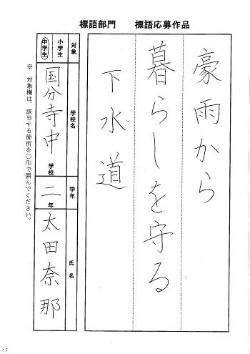 標語部門 標語応募作品
豪雨から
暮らしを守る
下水道
対象
小学生
中学生
学校名
国分寺中
学校
学年
二年
氏名
太田奈那
※ 対象欄は、該当する箇所を○印で囲んでください。